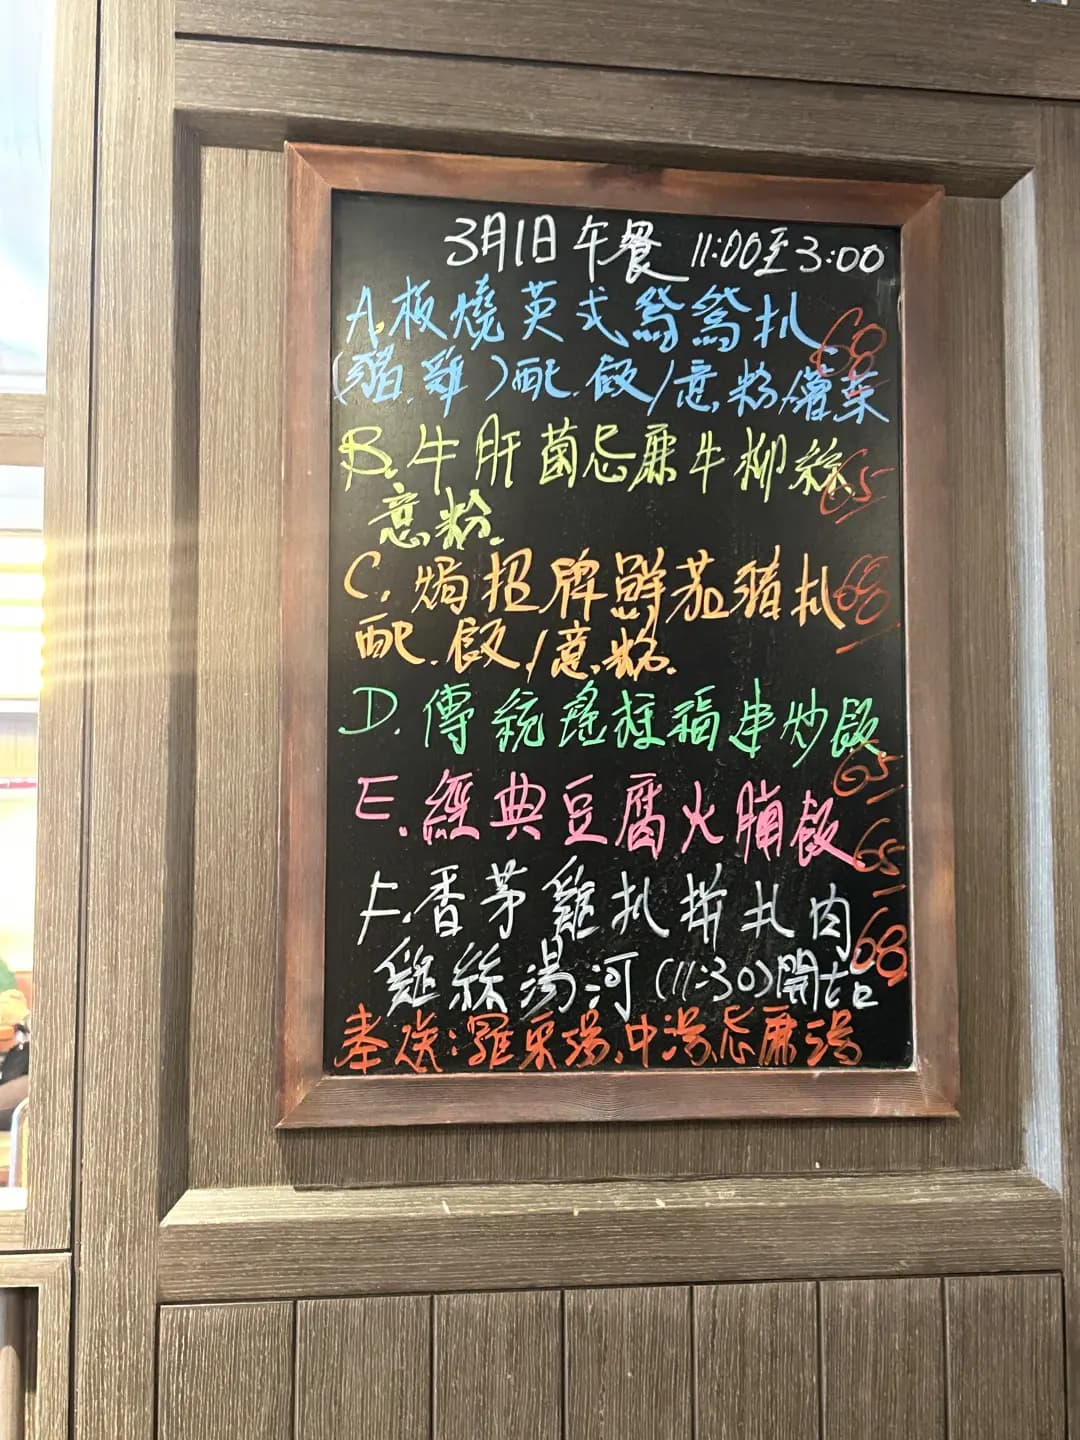 3月1日 午餐 11:00至3:00
A.板燒英式鴛鴦扒 60
(豬.雞)配.飯/意.粉/薯菜
B.牛肝菌忌廉牛柳絲 65
意粉.
C.焗招牌鮮茄豬扒 60
配.飯/意.粉.
D.傳統瑤柱福建炒飯 65
E.經典豆腐火腩飯 65
F.香茅雞扒拼扎肉 68
雞絲湯河(11:30)開始
奉送:羅宋湯.中湯.忌廉湯